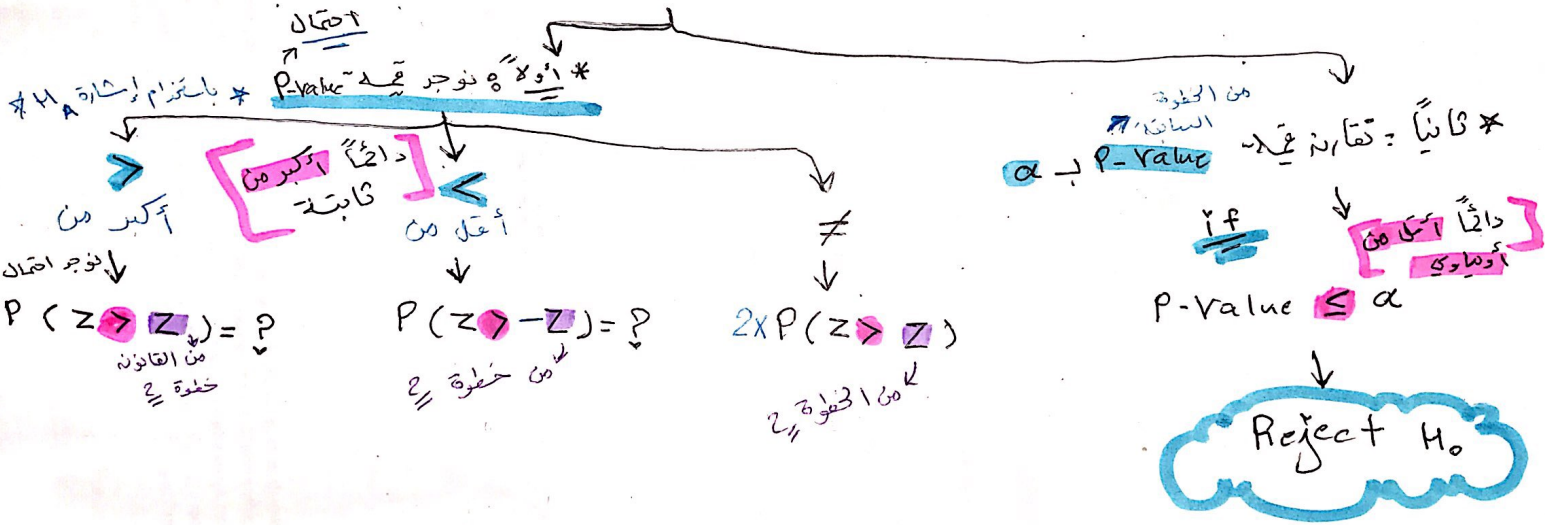 احتمال
* أولاً: نوجد قيمة P-value * باستخدام إشارة H_A *
>
أكبر من
نوجد احتمال
P ( Z > Z ) = ?
من القانون
خطوة 2
[ دائماً أكبر من
ثابتة ]
<
أقل من
P ( Z > -Z ) = ?
من خطوة 2
≠
2x P ( Z > Z )
من الخطوة 2
من الخطوة
السابقة
* ثانياً : تقارن قيمة P-Value بـ α
if
[ دائماً أقل من
أو يساوي ]
P-Value ≤ α
Reject H₀